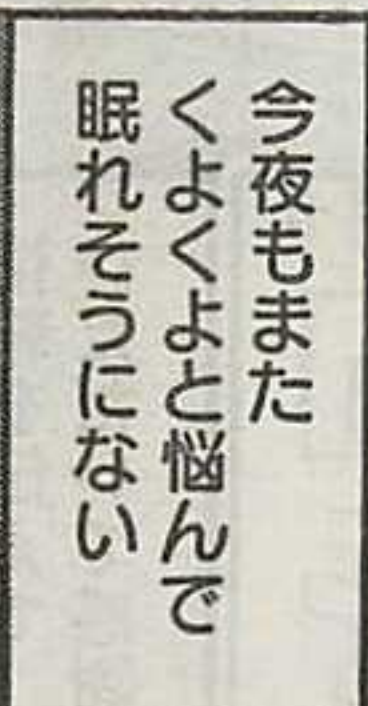 今夜もまた
くよくよと悩んで
眠れそうにない